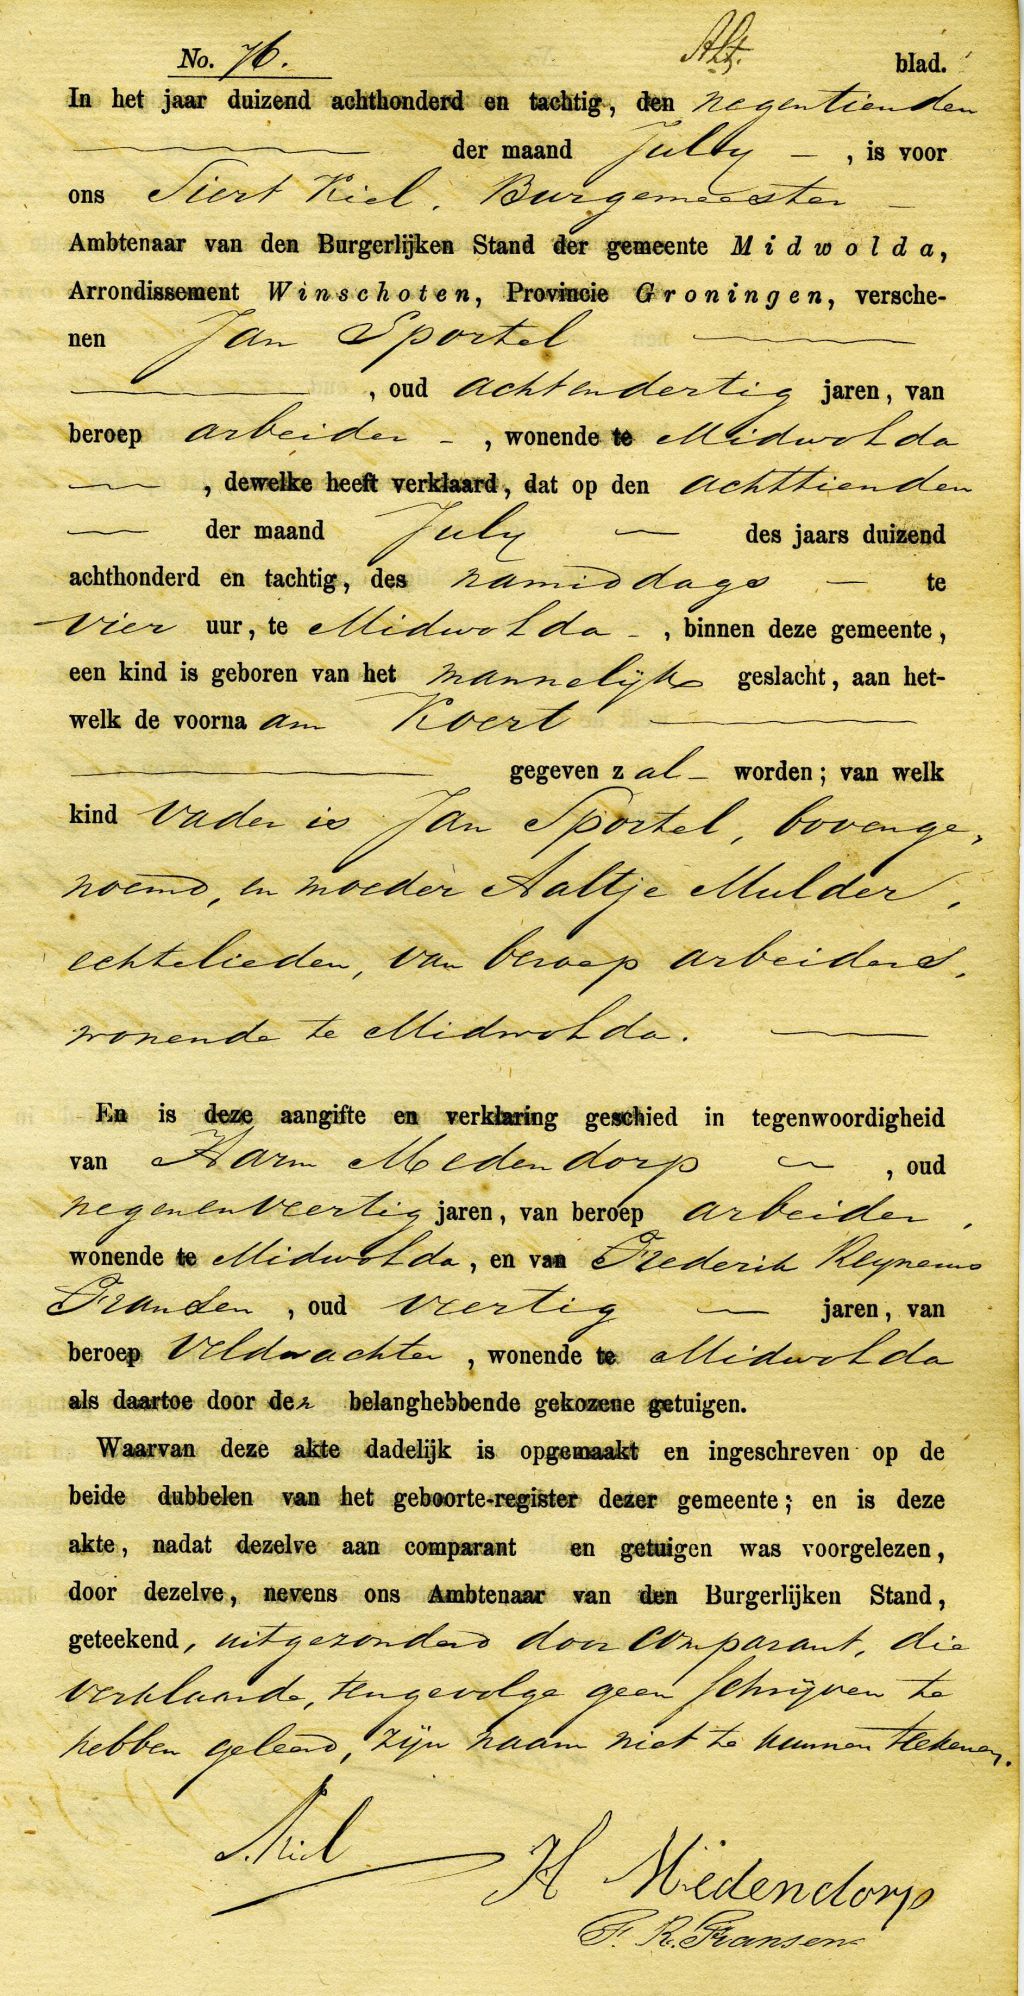 No. 76. blad.
In het jaar duizend achthonderd en tachtig, den negentienden
der maand July, is voor
ons Siert Kiel, Burgemeester
Ambtenaar van den Burgerlijken Stand der gemeente Midwolda,
Arrondissement Winschoten, Provincie Groningen, versche-
nen Jan Sportel
, oud achtendertig jaren, van
beroep arbeider, wonende te Midwolda
, dewelke heeft verklaard, dat op den achttienden
der maand July des jaars duizend
achthonderd en tachtig, des namiddags te
vier uur, te Midwolda, binnen deze gemeente,
een kind is geboren van het mannelijk geslacht, aan het-
welk de voornaam Koert
gegeven zal worden; van welk
kind vader is Jan Sportel, bovenge-
noemd, en moeder Aaltje Mulder,
echtelieden, van beroep arbeiders,
wonende te Midwolda.
En is deze aangifte en verklaring geschied in tegenwoordigheid
van Harm Medendorp, oud
negenenveertig jaren, van beroep arbeider,
wonende te Midwolda, en van Frederik
Fransen, oud veertig jaren, van
beroep veldwachter, wonende te Midwolda
als daartoe door den belanghebbende gekozene getuigen.
Waarvan deze akte dadelijk is opgemaakt en ingeschreven op de
beide dubbelen van het geboorte-register dezer gemeente; en is deze
akte, nadat dezelve aan comparant en getuigen was voorgelezen,
door dezelve, nevens ons Ambtenaar van den Burgerlijken Stand,
geteekend, uitgezonderd door comparant, die
verklaarde, tengevolge geen schrijven te
hebben geleerd, zijn naam niet te kunnen teekenen.
S. Kiel
H Medendorp
F. R. Fransen